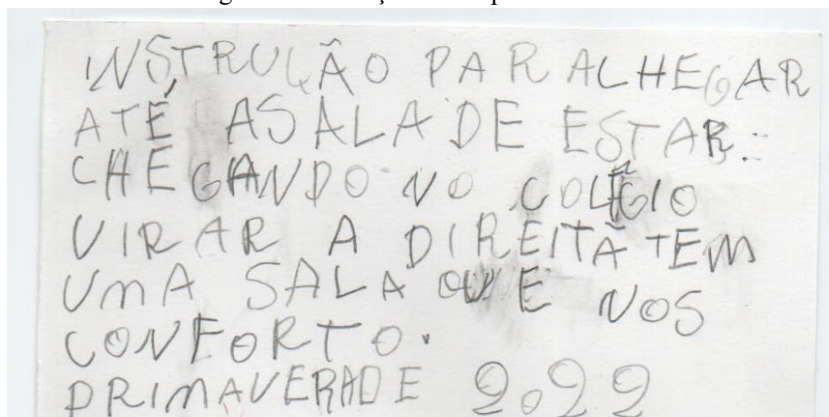 INSTRUÇÃO PAR ACHEGAR
ATÉ ASALA DE ESTAR:
CHEGANDO NO COLÉGIO
VIRAR A DIREITÃ TEM
UMA SALA QUE NOS
CONFORTO.
PRIMAVERADE 2.022